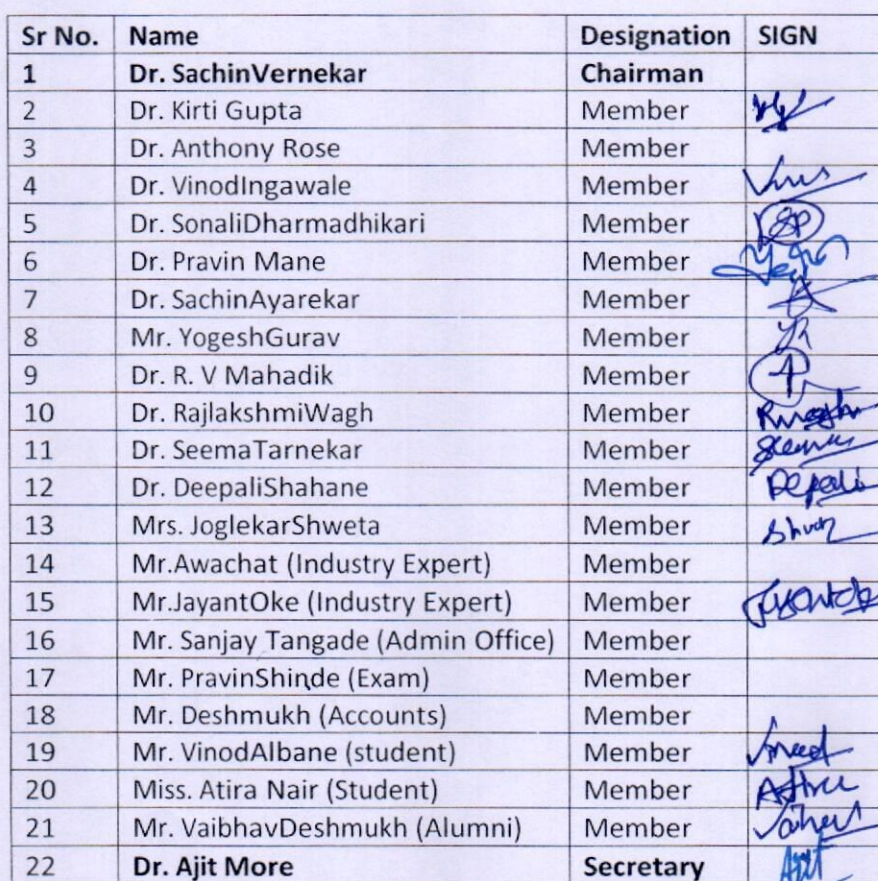 Sr No. Name Designation SIGN
1 Dr. SachinVernekar Chairman
2 Dr. Kirti Gupta Member
3 Dr. Anthony Rose Member
4 Dr. VinodIngawale Member
5 Dr. SonaliDharmadhikari Member
6 Dr. Pravin Mane Member
7 Dr. SachinAyarekar Member
8 Mr. YogeshGurav Member
9 Dr. R. V Mahadik Member
10 Dr. RajlakshmiWagh Member
11 Dr. SeemaTarnekar Member
12 Dr. DeepaliShahane Member Depali
13 Mrs. JoglekarShweta Member
14 Mr.Awachat (Industry Expert) Member
15 Mr.JayantOke (Industry Expert) Member
16 Mr. Sanjay Tangade (Admin Office) Member
17 Mr. PravinShinde (Exam) Member
18 Mr. Deshmukh (Accounts) Member
19 Mr. VinodAlbane (student) Member
20 Miss. Atira Nair (Student) Member
21 Mr. VaibhavDeshmukh (Alumni) Member
22 Dr. Ajit More Secretary